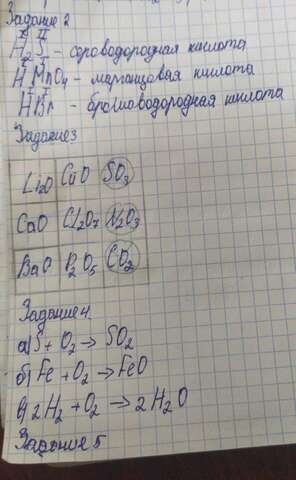 Задание 2
H₂S - сероводородная кислота
HMnO₄ - марганцовая кислота
HBr - бромоводородная кислота
Задание 3
Li₂O CuO SO₃
CaO Cl₂O₇ N₂O₃
BaO P₂O₅ CO₂
Задание 4.
а) S + O₂ → SO₂
б) Fe + O₂ → FeO
в) 2H₂ + O₂ → 2H₂O
Задание 5